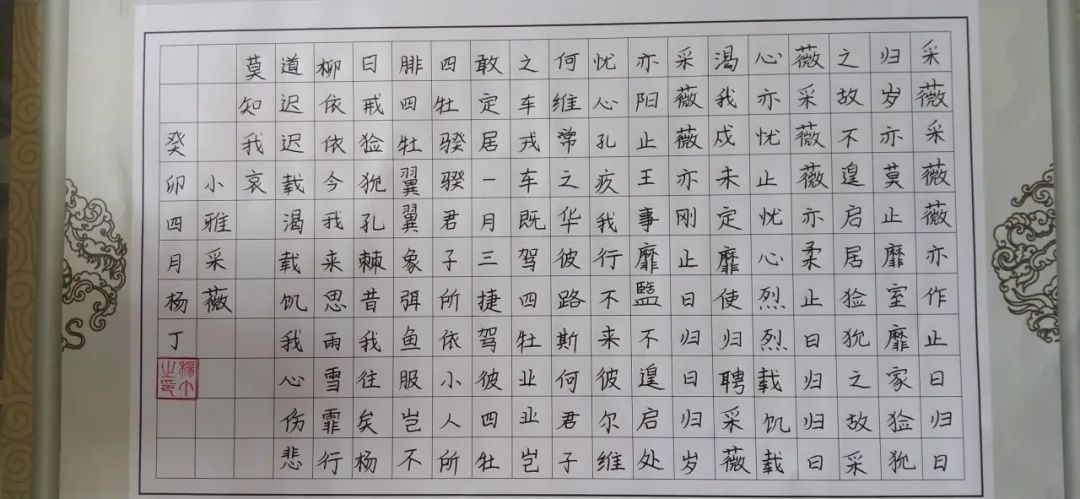 采薇采薇薇亦作止曰归曰
归岁亦莫止靡室靡家猃狁
之故不遑启居猃狁之故采
薇采薇薇亦柔止曰归归曰
心亦忧止忧心烈烈载饥载
渴我戍未定靡使归聘采薇
采薇薇亦刚止曰归曰归岁
亦阳止王事靡盬不遑启处
忧心孔疚我行不来彼尔维
何维常之华彼路斯何君子
之车戎车既驾四牡业业岂
敢定居一月三捷驾彼四牡
四牡骙骙君子所依小人所
腓四牡翼翼象弭鱼服岂不
日戒猃狁孔棘昔我往矣杨
柳依依今我来思雨雪霏行
道迟迟载渴载饥我心伤悲
莫知我哀
小雅采薇
癸卯四月杨丁
杨丁之印